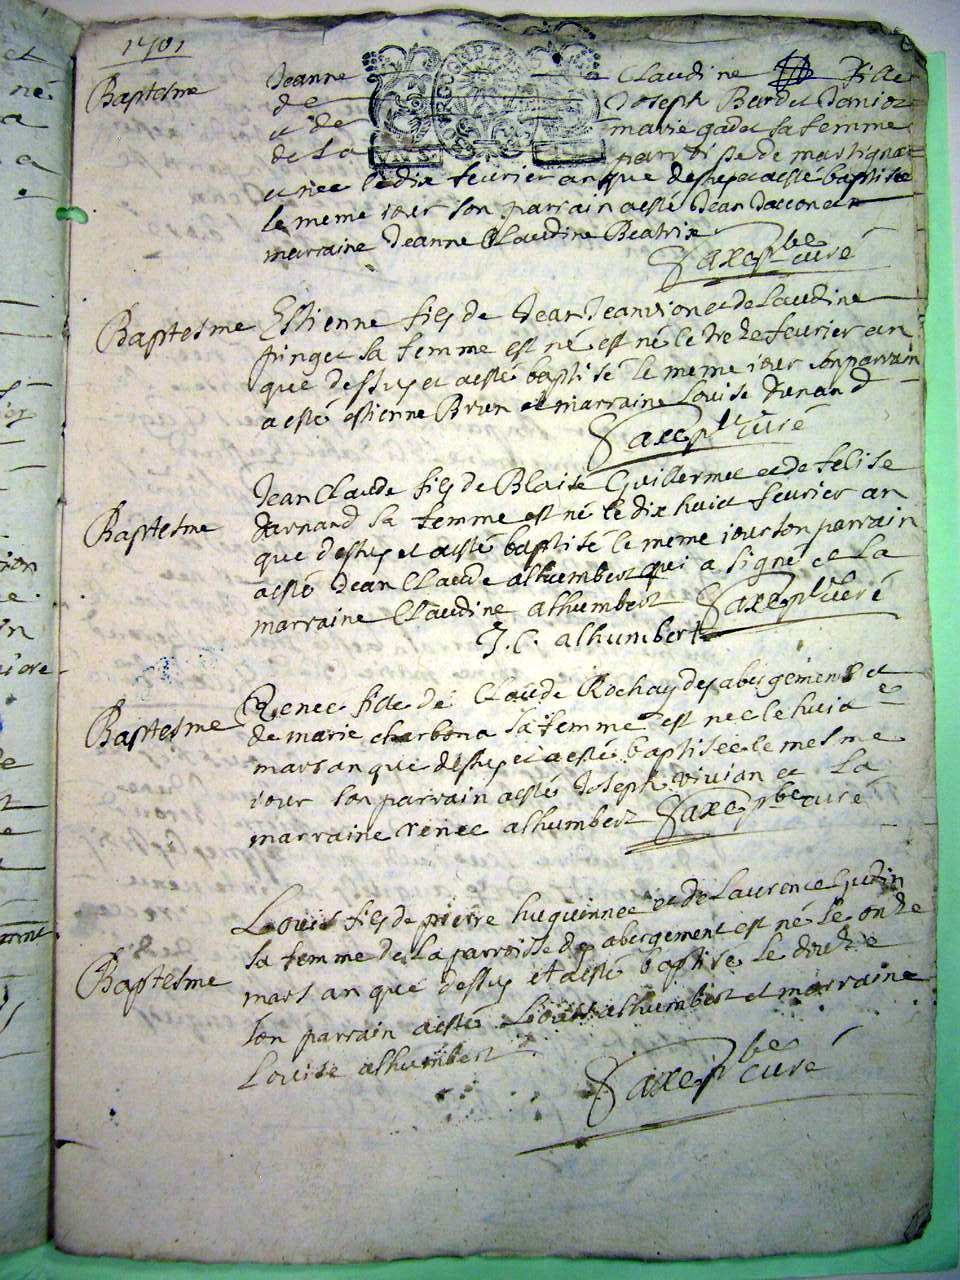 1701
Baptesme
Jeanne Claudine fille
de Joseph Bardet Daniot
et de marie gadot sa femme
de La parroisse de martigna
et nee le dix feurier an que dessus et aesté baptisee
le meme iour son parrain aesté Jean et
marraine Jeanne Claudine Beatrix
Saxe pbe curé
Baptesme
Estienne fils de Jean Jeannion et de Laudine
pinget sa femme est né est né le treze feurier an
que dessus et aesté baptisé le meme iour son parrain
aesté estienne Brun et marraine Louise dunand
Saxe pbr curé
Baptesme
Jean Claude fils de Blaise Guillermet et de felise
darnand sa femme est né le dix huict feurier an
que dessus et aesté baptisé le meme iour son parrain
aesté Jean Claude alhumbert qui a signé et La
marraine Claudine alhumbert Saxe pbr curé
J. C. alhumbert
Baptesme
Renee fille de Claude Rochay des abergements et
de marie charbona sa femme est nee le huict
mars an que dessus et aesté baptisee le mesme
iour son parrain aesté Joseph vivian et La
marraine renee alhumbert Saxe pbe curé
Baptesme
Louis fils de pierre huguinnee et de Laurence Gutin
sa femme de La parroisse des abergement est né le onze
mars an que dessus et aesté baptisé Le douze
son parrain aesté Louis alhumbert et marraine
Louise alhumbert
Saxe pbe curé